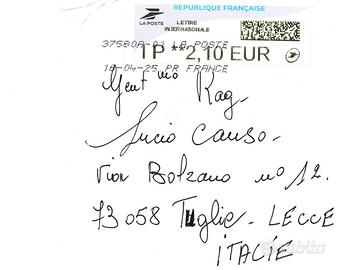 RÉPUBLIQUE FRANÇAISE
LA POSTE
LETTRE
INTERNATIONALE
37580A 01 LA POSTE
TP **2,10 EUR
18-04-25 PR FRANCE
Gent mo Rag.
Lucio Causo -
Via Bolzano no 12.
73058 Tuglie - LECCE
ITALIE
subito